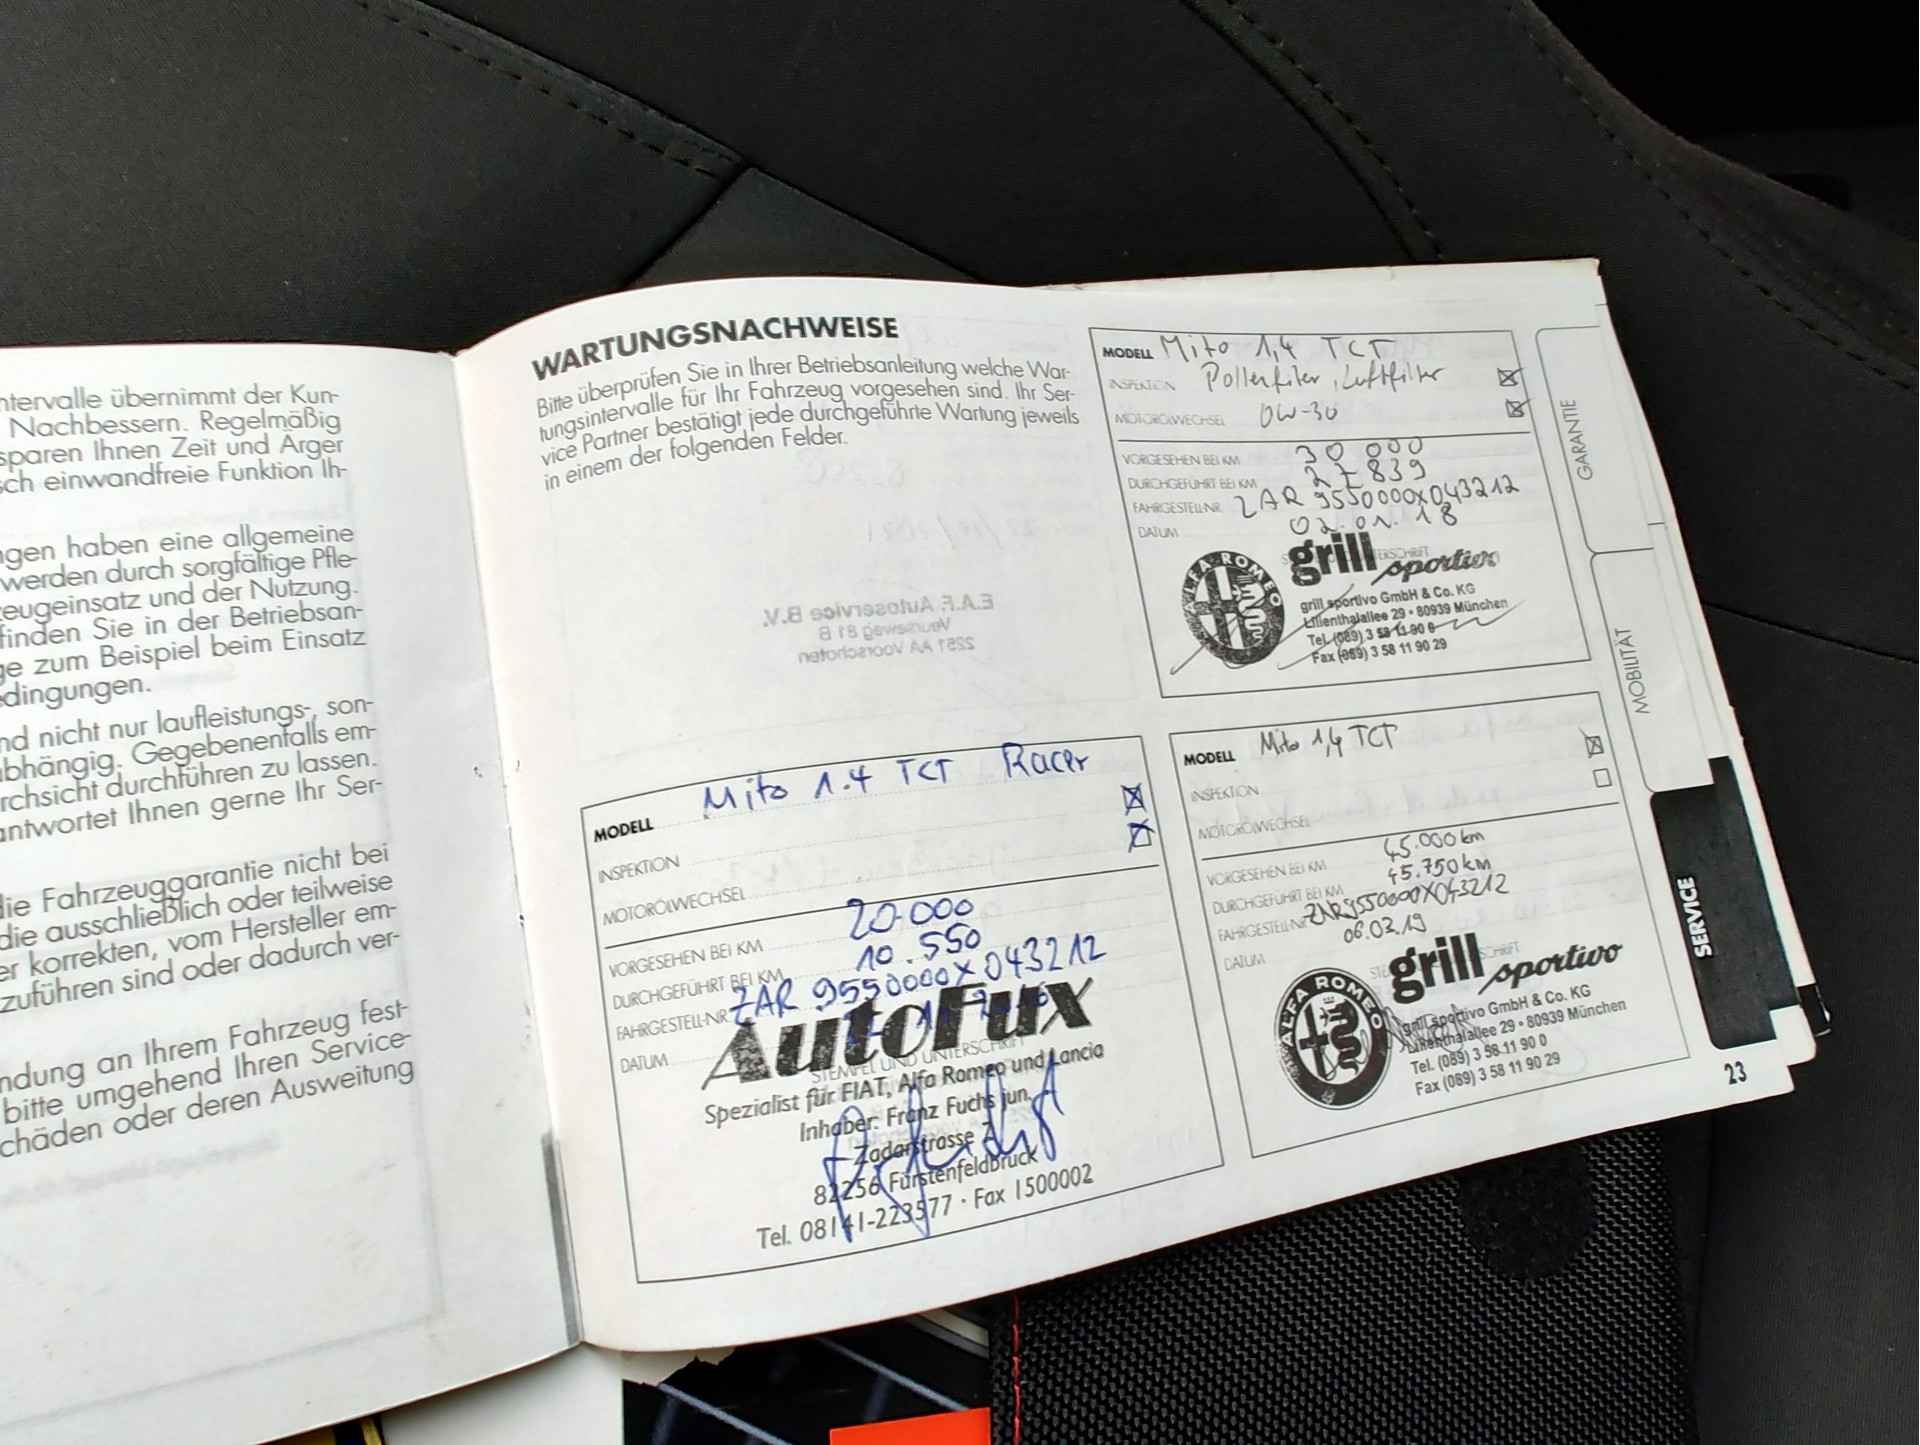 ntervalle übernimmt der Kun-
Nachbessern. Regelmäßig
sparen Ihnen Zeit und Ärger
sch einwandfreie Funktion Ih-
ngen haben eine allgemeine
werden durch sorgfältige Pfle-
zeugeinsatz und der Nutzung.
finden Sie in der Betriebsan-
ge zum Beispiel beim Einsatz
dingungen.
nd nicht nur laufleistungs-, son-
abhängig. Gegebenenfalls em-
rchsicht durchführen zu lassen.
antwortet Ihnen gerne Ihr Ser-
die Fahrzeuggarantie nicht bei
die ausschließlich oder teilweise
er korrekten, vom Hersteller em-
zuführen sind oder dadurch ver-
ndung an Ihrem Fahrzeug fest-
bitte umgehend Ihren Service-
chäden oder deren Ausweitung
WARTUNGSNACHWEISE
Bitte überprüfen Sie in Ihrer Betriebsanleitung welche War-
tungsintervalle für Ihr Fahrzeug vorgesehen sind. Ihr Ser-
vice Partner bestätigt jede durchgeführte Wartung jeweils
in einem der folgenden Felder.
E.A.F. Autoservice B.V.
2251 AA Voorschoten
MODELL Mito 1.4 TCT Racer
INSPEKTION
MOTORÖLWECHSEL
VORGESEHEN BEI KM 20.000
DURCHGEFÜHRT BEI KM 10.550
FAHRGESTELL-NR. ZAR9550000X043212
DATUM
STEMPEL UND UNTERSCHRIFT
AutoFux
Spezialist für FIAT, Alfa Romeo und Lancia
Inhaber: Franz Fuchs jun.
Zadarstrasse 7
82256 Fürstenfeldbruck
Tel. 08141-223577 · Fax 1500002
MODELL Mito 1,4 TCT
INSPEKTION Pollenfilter, Luftfilter
MOTORÖLWECHSEL 0W-30
VORGESEHEN BEI KM 30 000
DURCHGEFÜHRT BEI KM 27839
FAHRGESTELL-NR. ZAR9550000X043212
DATUM 02.01.18
ALFA ROMEO
grill sportivo
grill sportivo GmbH & Co. KG
Lilienthalallee 29 • 80939 München
Tel. (089) 3 58 11 90 0
Fax (089) 3 58 11 90 29
MODELL Mito 1,4 TCT
INSPEKTION
MOTORÖLWECHSEL
VORGESEHEN BEI KM 45.000km
DURCHGEFÜHRT BEI KM 45.750km
FAHRGESTELL-NR. ZAR9550000X043212
DATUM 06.03.19
ALFA ROMEO
grill sportivo
grill sportivo GmbH & Co. KG
Lilienthalallee 29 • 80939 München
Tel. (089) 3 58 11 90 0
Fax (089) 3 58 11 90 29
GARANTIE
MOBILITÄT
SERVICE
23